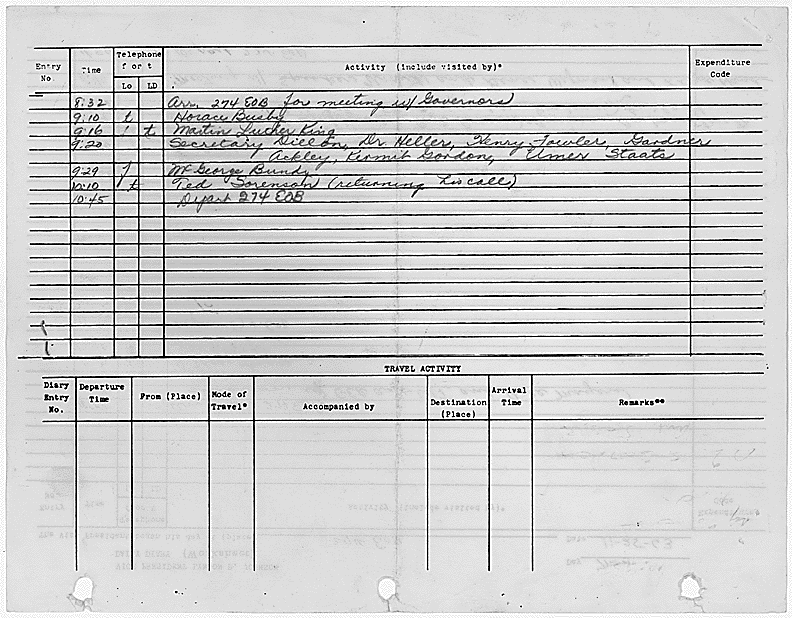 Entry No. Time Telephone f or t Lo LD Activity (include visited by)* Expenditure Code
8:32 Arr. 274 EOB for meeting w/ Governors
9:10 t Horace Busby
9:16 t Martin Luther King
9:20 Secretary Dillon, Dr Heller, Henry Fowler, Gardner
Ackley, Kermit Gordon, Elmer Staats
9:29 f McGeorge Bundy
10:10 t Ted Sorenson (returning his call)
10:45 Depart 274 EOB
TRAVEL ACTIVITY
Diary Entry No. Departure Time From (Place) Mode of Travel* Accompanied by Destination (Place) Arrival Time Remarks**
11-25-63